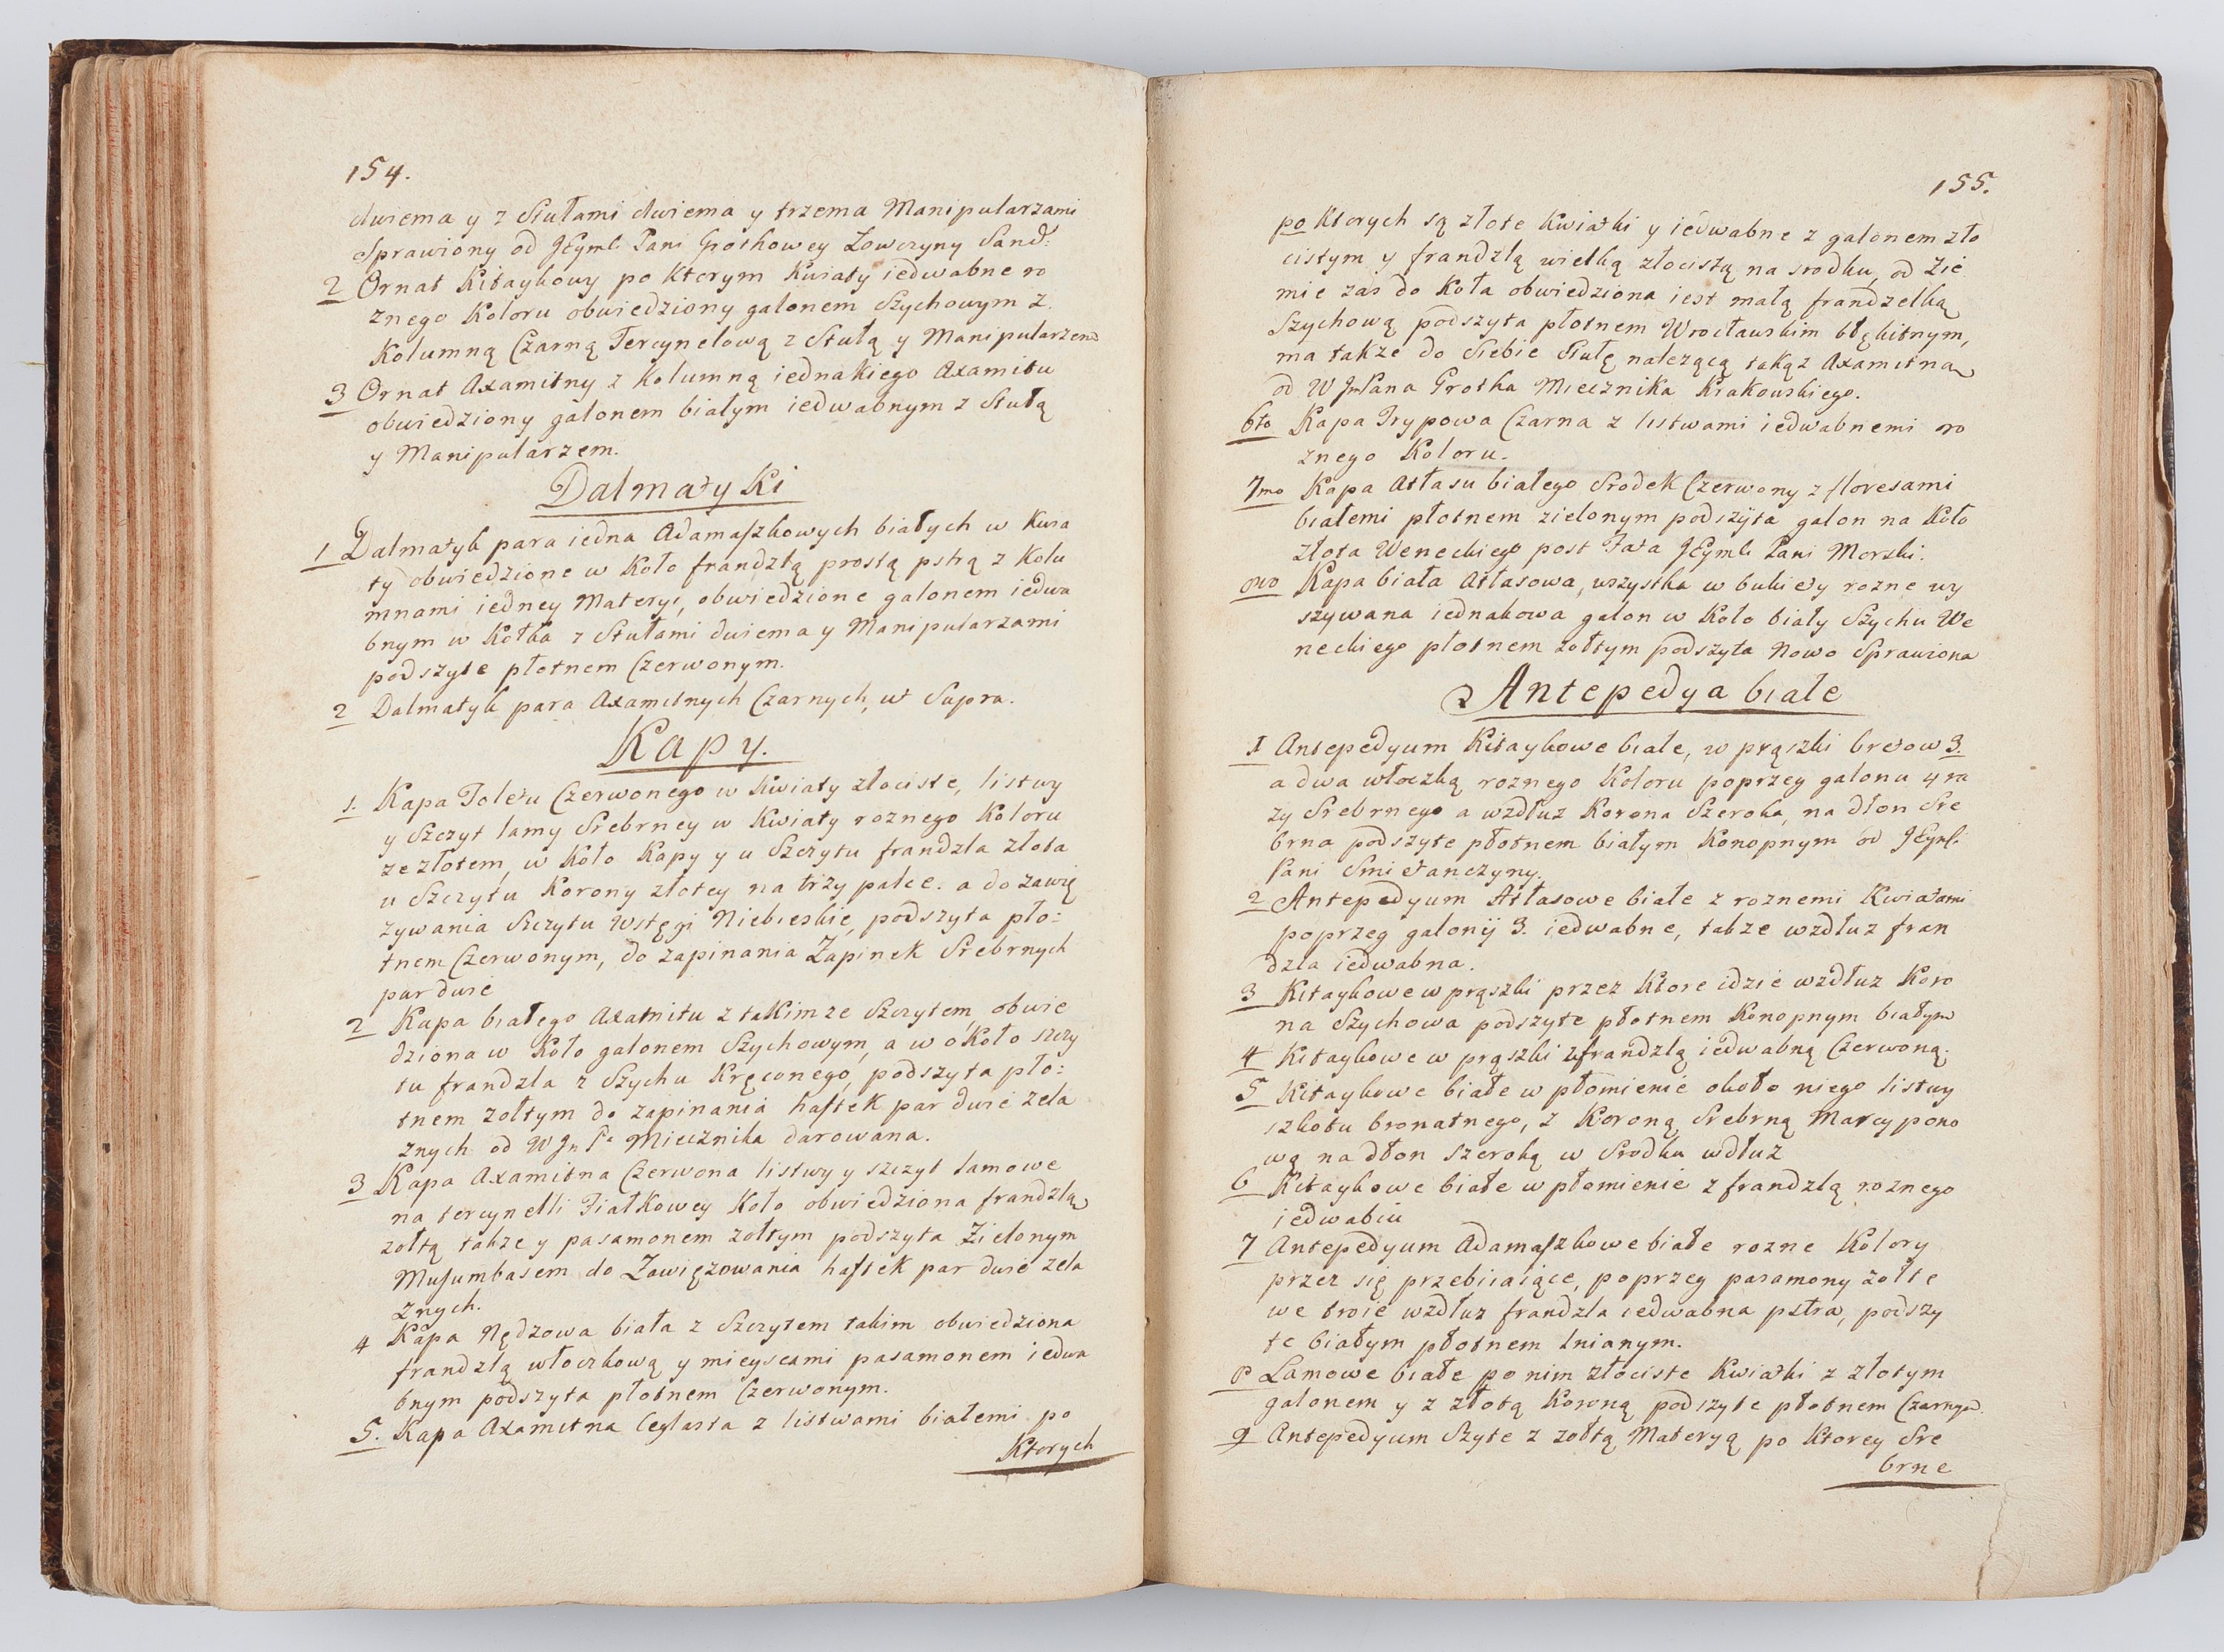 154.
dwiema y z Stułami dwiema y trzema Manipularzami
Sprawiony od JEymć Pani Grothowey Łowczyny Sand:
2 Ornat Kitaykowy po Ktorym Kwiaty iedwabne ro
znego Koloru obwiedziony galonem Szychowym z
Kolumną Czarną Tercynelową z Stułą y Manipularzem
3 Ornat Axamitny z Kolumną iednakiego Axamitu
obwiedziony galonem białym iedwabnym z Stułą
y Manipularzem.
Dalmatyki
1 Dalmatyk para iedna Adamaszkowych białych w Kwia
ty obwiedzione w Koło frandzlą prostą pstrą z Kolu
mnami iedney Materyi, obwiedzione galonem iedwa
bnym w Kołka z Stułami dwiema y Manipularzami
podszyte płotnem Czerwonym.
2 Dalmatyk para Axamitnych Czarnych, ut Supra.
Kapy.
1. Kapa Toletu Czerwonego w Kwiaty złociste, listwy
y Szczyt lamy Srebrney w Kwiaty roznego Koloru
ze złotem, w Koło Kapy y u Szczytu frandzla złota
u Szczytu Korony złotey na trzy palce. a do zawię
zywania Szczytu Wstęgi Niebieskie, podszyta pło=
tnem Czerwonym, do zapinania Zapinek Srebrnych
par dwie
2 Kapa białego Axamitu z takimze Szczytem, obwie
dziona w Koło galonem Szychowym, a w około szczy
tu frandzla z Szychu Kręconego, podszyta pło=
tnem zołtym do zapinania haftek par dwie zela
znych od W Jn Pa Miecznika darowana.
3 Kapa Axamitna Czerwona listwy y szczyt lamowe
na tercynelli Fiałkowey Koło obwiedziona frandzlą
zołtą takze y pasamonem zołtym podszyta Zielonym
Musumbasem do Zawięzowania haftek par dwie zela
znych.
4 Kapa Nędzowa biała z Szczytem takim obwiedziona
frandzlą włoczkową y mieyscami pasamonem iedwa
bnym podszyta płotnem Czerwonym.
5. Kapa Axamitna Ceglasta z listwami białemi po
Ktorych
155.
po Ktorych są złote Kwiatki y iedwabne z galonem zło
cistym y frandzlą wielką złocistą na srodku, od Zie
mie zas do Koła obwiedziona iest małą frandzelką
Szychową podszyta płotnem Wrocławskim błękitnym,
ma takze do Siebie Stułę nalezącą takąz Axamitną
od W Jm Pana Grotha Miecznika Krakowskiego.
6to Kapa Trypowa Czarna z listwami iedwabnemi ro
znego Koloru.
7mo Kapa Atłasu białego Srodek Czerwony z floresami
białemi płotnem zielonym podszyta galon na Koło
złota Weneckiego post Fata JEymć Pani Morski.
8vo Kapa biała Atłasowa, wszystka w bukiety rozne wy
szywana iednakowa galon w Koło biały Szychu We
neckiego płotnem zołtym podszyta Nowo Sprawiona
Antepedya białe
1 Antepedyum Kitaykowe białe, w prązki bretow 3.
a dwa włoczką roznego Koloru poprzeg galonu 4 ra
zy Srebrnego a wzdłuz Korona Szeroka, na dłon Sre
brna podszyte płotnem białym Konopnym od JEymć
Pani Smietanczyny.
2 Antepedyum Atłasowe białe z roznemi Kwiatami
poprzeg galony 3. iedwabne, takze wzdłuz fran
dzla iedwabna.
3 Kitaykowe w prązki przez Ktore idzie wzdłuz Koro
na Szychowa podszyte płotnem Konopnym białym
4 Kitaykowe w prązki z frandzlą iedwabną Czerwoną.
5 Kitaykowe białe w płomienie około niego listwy
szkotu bronatnego, z Koroną Srebrną Marcypono
wą na dłon szeroką w Srodku wdłuz
6 Kitaykowe białe w płomienie z frandzlą roznego
iedwabiu
7 Antepedyum Adamaszkowe białe rozne Kolory
przez się przebiiaiące, poprzeg pasamony zołte
we troie wzdłuz frandzla iedwabna pstra, podszy
te białym płotnem lnianym.
8 Lamowe białe po nim złociste Kwiatki z złotym
galonem y z złotą Koroną podszyte płotnem Czarnym.
9 Antepedyum Szyte z zołtą Materyą po Ktorey Sre
brne